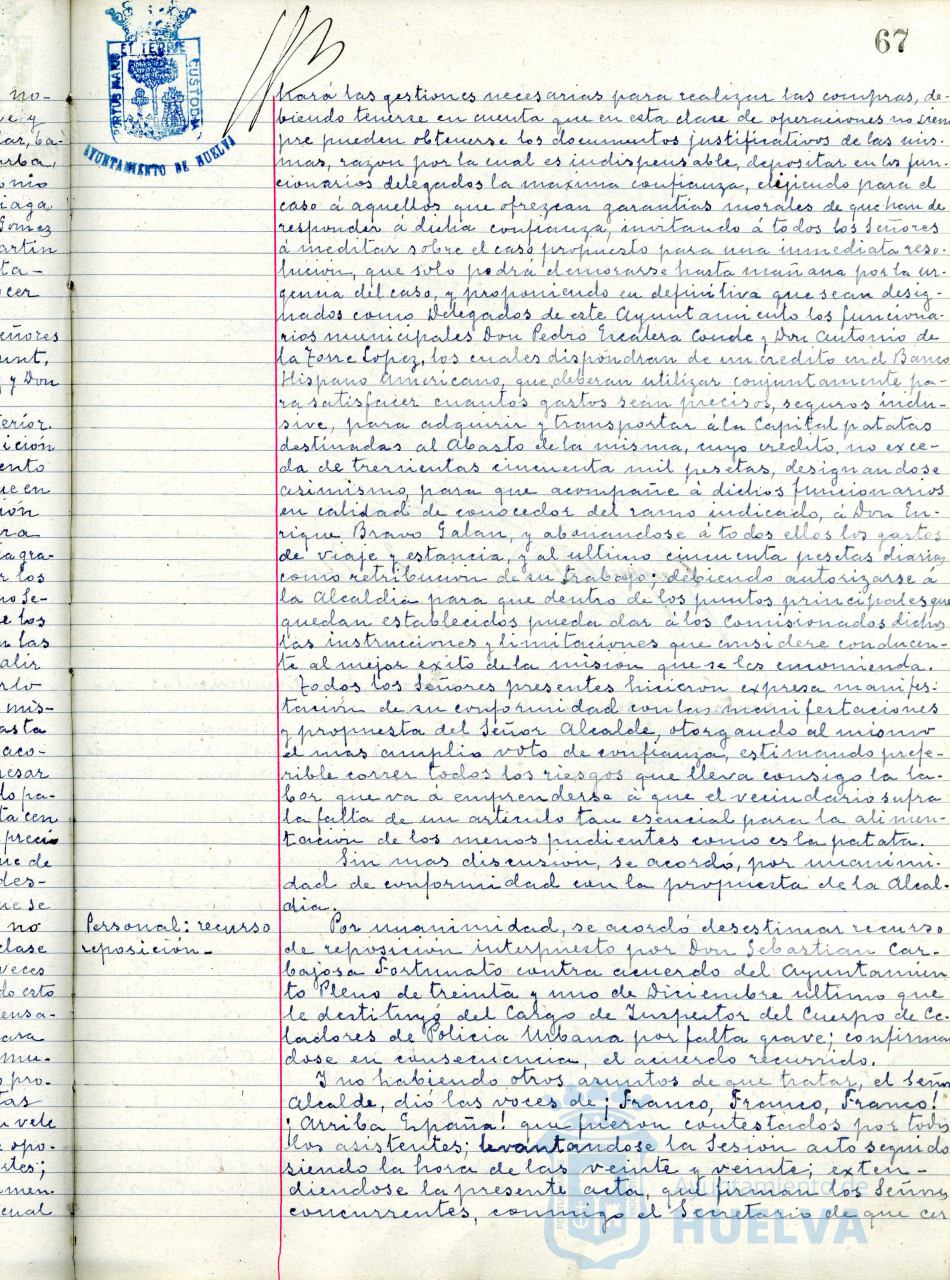 67
PORTUS MARIS ET TERRE CUSTODIA
AYUNTAMIENTO DE HUELVA
tará las gestiones necesarias para realizar las compras, de-
biendo tenerse en cuenta que en esta clase de operaciones no siem
pre pueden obtenerse los documentos justificativos de las mis-
mas, razon por la cual es indispensable, depositar en los fun-
cionarios delegados la maxima confianza, elijiendo para el
caso á aquellos que ofrezcan garantias morales de que han de
responder á dicha confianza, invitando á todos los Señores
á meditar sobre el caso propuesto para una inmediata reso-
lucion, que solo podrá demorarse hasta mañana por la ur-
gencia del caso, y proponiendo en definitiva que sean desig-
nados como Delegados de este Ayuntamiento los funciona-
rios municipales Don Pedro Escalera Conde y Don Antonio de
la Torre Lopez, los cuales dispondran de un credito en el Banco
Hispano Americano, que deberan utilizar conjuntamente pa-
ra satisfacer cuantos gastos sean precisos, seguros inclu-
sive, para adquirir y transportar á la Capital patatas
destinadas al Abasto de la misma, cuyo credito, no exce-
da de trescientas cincuenta mil pesetas, designandose
asimismo, para que acompañe á dichos funcionarios
en calidad de conocedor del ramo indicado, á Don En-
rique Bravo Galan, y abonandose á todos ellos los gastos
de viaje y estancia, y al ultimo cincuenta pesetas diarias
como retribucion de su trabajo; debiendo autorizarse á
la Alcaldia para que dentro de los puntos principales que
quedan establecidos pueda dar á los comisionados dichos
las instrucciones y limitaciones que considere conducen-
te al mejor exito de la mision que se les encomienda.
Todos los Señores presentes hicieron expresa manifes-
tación de su conformidad con las manifestaciones
y propuesta del Señor Alcalde, otorgando al mismo
el mas amplio voto de confianza, estimando prefe-
rible correr todos los riesgos que lleva consigo la la-
bor que va á emprenderse á que el vecindario sufra
la falta de un articulo tan esencial para la alimen-
tación de los menos pudientes como es la patata.
Sin mas discusión, se acordó, por unanimi-
dad de conformidad con la propuesta de la Alcal-
dia.
Personal: recurso
reposición.-
Por unanimidad, se acordó desestimar recurso
de reposición interpuesto por Don Sebastian Car-
bajosa Fortunato contra acuerdo del Ayuntamien
to Pleno de treinta y uno de Diciembre ultimo que
le destituyó del Cargo de Inspector del Cuerpo de Ce-
ladores de Policia Urbana por falta grave; confirman
dose en consecuencia, el acuerdo recurrido.
Y no habiendo otros asuntos de que tratar, el Señor
Alcalde, dió las voces de ¡Franco, Franco, Franco!
¡Arriba España! que fueron contestados por todos
los asistentes; levantandose la Sesión acto seguido
siendo la hora de las veinte y veinte; exten-
diendose la presente acta, que firman los Señores
concurrentes, conmigo el Secretario de que cer
Ayuntamiento de
HUELVA